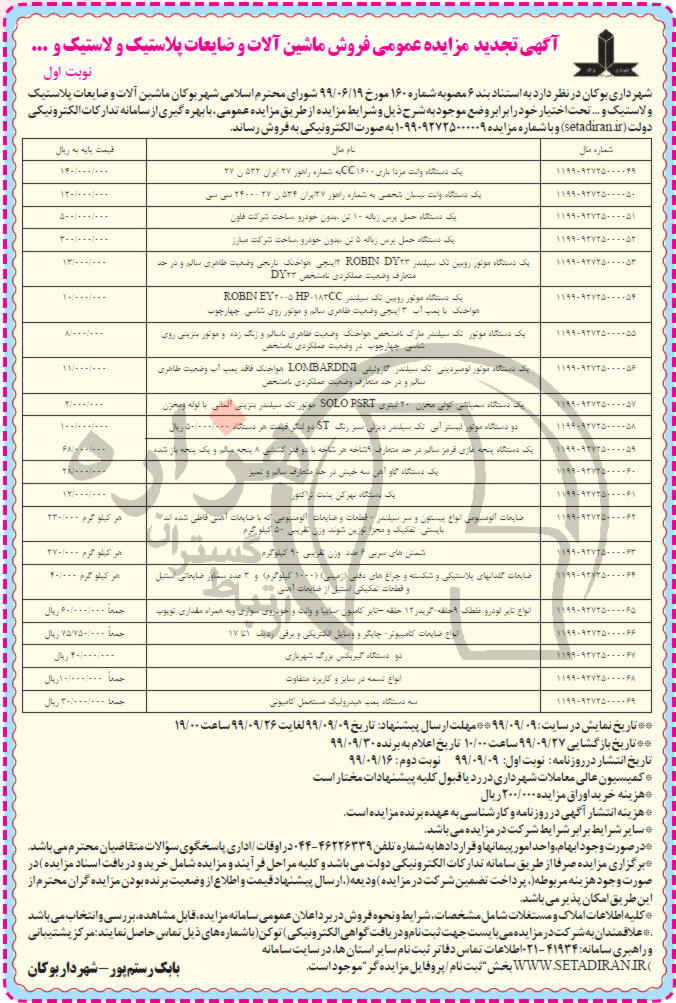 آگهی تجدید مزایده عمومی فروش ماشین آلات و ضایعات پلاستیک و لاستیک و ...
نوبت اول
شهرداری بوکان در نظر دارد به استناد بند ۶ مصوبه شماره ۱۶۰ مورخ ۹۹/۰۶/۱۹ شورای محترم اسلامی شهر بوکان ماشین آلات و ضایعات پلاستیک
و لاستیک و ... تحت اختیار خود را برابر وضع موجود به شرح ذیل و شرایط مزایده از طریق مزایده عمومی، با بهره گیری از سامانه تدارکات الکترونیکی
دولت (setadiran.ir) و با شماره مزایده ۱۰۹۹۰۹۲۷۲۵۰۰۰۰۰۹ به صورت الکترونیکی به فروش رساند.
شماره مال نام مال قیمت پایه به ریال
۱۱۹۹۰۹۲۷۲۵۰۰۰۰۴۹ یک دستگاه وانت مزدا باری ۱۶۰۰CC به شماره راهور ۲۷ ایران ۵۳۲ ن ۲۷ ۱۴۰/۰۰۰/۰۰۰
۱۱۹۹۰۹۲۷۲۵۰۰۰۰۵۰ یک دستگاه وانت نیسان شخصی به شماره راهور ۲۷ایران ۵۳۴ ن ۲۷ -۲۴۰۰ سی سی ۱۲۰/۰۰۰/۰۰۰
۱۱۹۹۰۹۲۷۲۵۰۰۰۰۵۱ یک دستگاه حمل پرس زباله ۱۰ تن ،بدون خودرو ،ساخت شرکت فاون ۵۰۰/۰۰۰/۰۰۰
۱۱۹۹۰۹۲۷۲۵۰۰۰۰۵۲ یک دستگاه حمل پرس زباله ۵ تن ،بدون خودرو ،ساخت شرکت مبارز ۳۰۰/۰۰۰/۰۰۰
۱۱۹۹۰۹۲۷۲۵۰۰۰۰۵۳ یک دستگاه موتور روبین تک سیلندر ROBIN DY۲۳ ۲اینچی هواخنک نارنجی وضعیت ظاهری سالم و در حد ۱۳/۰۰۰/۰۰۰
متعارف وضعیت عملکردی نامشخص DY۲۳
۱۱۹۹۰۹۲۷۲۵۰۰۰۰۵۴ یک دستگاه موتور روبین تک سیلندر ROBIN EY۲۰-۵ HP-۱۸۳CC ۱۰/۰۰۰/۰۰۰
هواخنک با پمپ آب ۳ اینچی وضعیت ظاهری سالم و موتور روی شاسی چهارچوب
۱۱۹۹۰۹۲۷۲۵۰۰۰۰۵۵ یک دستگاه موتور تک سیلندر مارک نامشخص هواخنک وضعیت ظاهری ناسالم و زنگ زده و موتور بنزینی روی ۸/۰۰۰/۰۰۰
شاسی چهارچوب در وضعیت عملکردی نامشخص
۱۱۹۹۰۹۲۷۲۵۰۰۰۰۵۶ یک دستگاه موتور لومبردینی تک سیلندر گازوئیلی LOMBARDINI هواخنک فاقد پمپ آب وضعیت ظاهری ۱۱/۰۰۰/۰۰۰
سالم و در حد متعارف وضعیت عملکردی نامشخص
۱۱۹۹۰۹۲۷۲۵۰۰۰۰۵۷ یک دستگاه سمپاشی کولی مخزن ۲۰ لیتری SOLO PSRT موتور تک سیلندر بنزینی آلمانی با لوله ومخزن ۲/۰۰۰/۰۰۰
۱۱۹۹۰۹۲۷۲۵۰۰۰۰۵۸ دو دستگاه موتور لیستر آبی تک سیلندر دیزلی سبز رنگ ST دو لنگر قیمت هر دستگاه ۵۰/۰۰۰/۰۰۰ ریال ۱۰۰/۰۰۰/۰۰۰
۱۱۹۹۰۹۲۷۲۵۰۰۰۰۵۹ یک دستگاه پنجه غازی قرمز سالم در حد متعارف ۹شاخه هر شاخه با دو فنر کششی ۸ پنجه سالم و یک پنجه باز شده ۶۸/۰۰۰/۰۰۰
۱۱۹۹۰۹۲۷۲۵۰۰۰۰۶۰ یک دستگاه گاو آهن سه خیش در حد متعارف سالم و تمیز ۲۸/۰۰۰/۰۰۰
۱۱۹۹۰۹۲۷۲۵۰۰۰۰۶۱ یک دستگاه نهرکن پشت تراکتور ۱۲/۰۰۰/۰۰۰
۱۱۹۹۰۹۲۷۲۵۰۰۰۰۶۲ ضایعات آلومینومی انواع پیستون و سر سیلندر - قطعات و ضایعات آلومینیومی که با ضایعات آهنی قاطی شده اند هر کیلو گرم ۲۳۰/۰۰۰
بایستی تفکیک و مجزا توزین شوند. وزن تقریبی ۵۰ کیلوگرم
۱۱۹۹۰۹۲۷۲۵۰۰۰۰۶۳ شمش های سربی ۶ عدد وزن تقریبی ۹۰ کیلوگرم هر کیلو گرم ۲۷۰/۰۰۰
۱۱۹۹۰۹۲۷۲۵۰۰۰۰۶۴ ضایعات گلدانهای پلاستیکی و شکسته و چراغ های دفنی (زمینی) (۱۰۰۰ کیلوگرم) و ۳ عدد سماور ضایعاتی استیل هر کیلو گرم ۴۰/۰۰۰
و قطعات تفکیکی استیل از ضایعات آهنی
۱۱۹۹۰۹۲۷۲۵۰۰۰۰۶۵ انواع تایر لودرو غلطک ۹حلقه-گریدر۱۲ حلقه -تایر کامیون-سایپا و وانت و خودروی سواری وبه همراه مقداری تویوپ جمعاً ۶۰/۰۰۰/۰۰۰ ریال
۱۱۹۹۰۹۲۷۲۵۰۰۰۰۶۶ انواع ضایعات کامپیوتر- چاپگر و وسایل الکتریکی و برقی ردیف ۱تا ۱۷ جمعاً ۷۵/۷۵۰/۰۰۰ ریال
۱۱۹۹۰۹۲۷۲۵۰۰۰۰۶۷ دو دستگاه گیربکس بزرگ شهربازی ۴۰/۰۰۰/۰۰۰ ریال
۱۱۹۹۰۹۲۷۲۵۰۰۰۰۶۸ انواع تسمه در سایز و کاربرد متفاوت جمعاً ۱۰/۰۰۰/۰۰۰ریال
۱۱۹۹۰۹۲۷۲۵۰۰۰۰۶۹ سه دستگاه پمپ هیدرولیک مستعمل کامیونی جمعاً ۳۰/۰۰۰/۰۰۰ ریال
**تاریخ نمایش در سایت: ۹۹/۰۹/۰۹**مهلت ارسال پیشنهاد: تاریخ ۹۹/۰۹/۰۹ لغایت ۹۹/۰۹/۲۶ ساعت ۱۹/۰۰
**تاریخ بازگشایی ۹۹/۰۹/۲۷ ساعت ۱۰/۰۰ تاریخ اعلام به برنده ۹۹/۰۹/۳۰
تاریخ انتشار در روزنامه: نوبت اول: ۹۹/۰۹/۰۹ نوبت دوم: ۹۹/۰۹/۱۶
*کمیسیون عالی معاملات شهرداری در رد یا قبول کلیه پیشنهادات مختار است
*هزینه خرید اوراق مزایده ۲۰۰/۰۰۰ ریال
*هزینه انتشار آگهی در روزنامه و کارشناسی به عهده برنده مزایده است.
*سایر شرایط برابر شرایط شرکت در مزایده می باشد.
*در صورت وجود ابهام، واحد امور پیمانها و قراردادها به شماره تلفن ۴۶۲۲۶۳۳۹-۰۴۴ در اوقات /اداری پاسخگوی سؤالات متقاضیان محترم می باشد.
*برگزاری مزایده صرفا از طریق سامانه تدارکات الکترونیکی دولت می باشد و کلیه مراحل فرآیند و مزایده شامل خرید و دریافت اسناد مزایده )در
صورت وجود هزینه مربوطه(، پرداخت تضمین شرکت در مزایده )ودیعه(، ارسال پیشنهاد قیمت و اطلاع از وضعیت برنده بودن مزایده گران محترم از
این طریق امکان پذیر می باشد.
*کلیه اطلاعات املاک و مستغلات شامل مشخصات، شرایط و نحوه فروش در برد اعلان عمومی سامانه مزایده، قابل مشاهده، بررسی و انتخاب می باشد
.*علاقمندان به شرکت در مزایده می بایست جهت ثبت نام و دریافت گواهی الکترونیکی )توکن(با شماره های ذیل تماس حاصل نمایند: مرکز پشتیبانی
و راهبری سامانه: ۴۱۹۳۴-۰۲۱ اطلاعات تماس دفاتر ثبت نام سایر استان ها، در سایت سامانه
)WWW.SETADIRAN.IR بخش "ثبت نام /پروفایل مزایده گر" موجود است.
بابک رستم پور – شهردار بوکان
هزاره
گستران
ارتباط